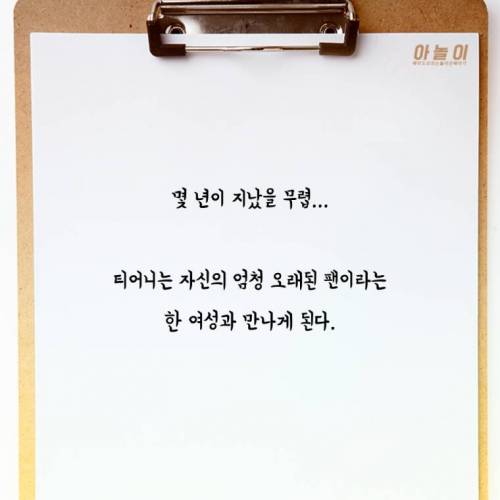 아놀이
몇 년이 지났을 무렵...
티어니는 자신의 엄청 오래된 팬이라는
한 여성과 만나게 된다.